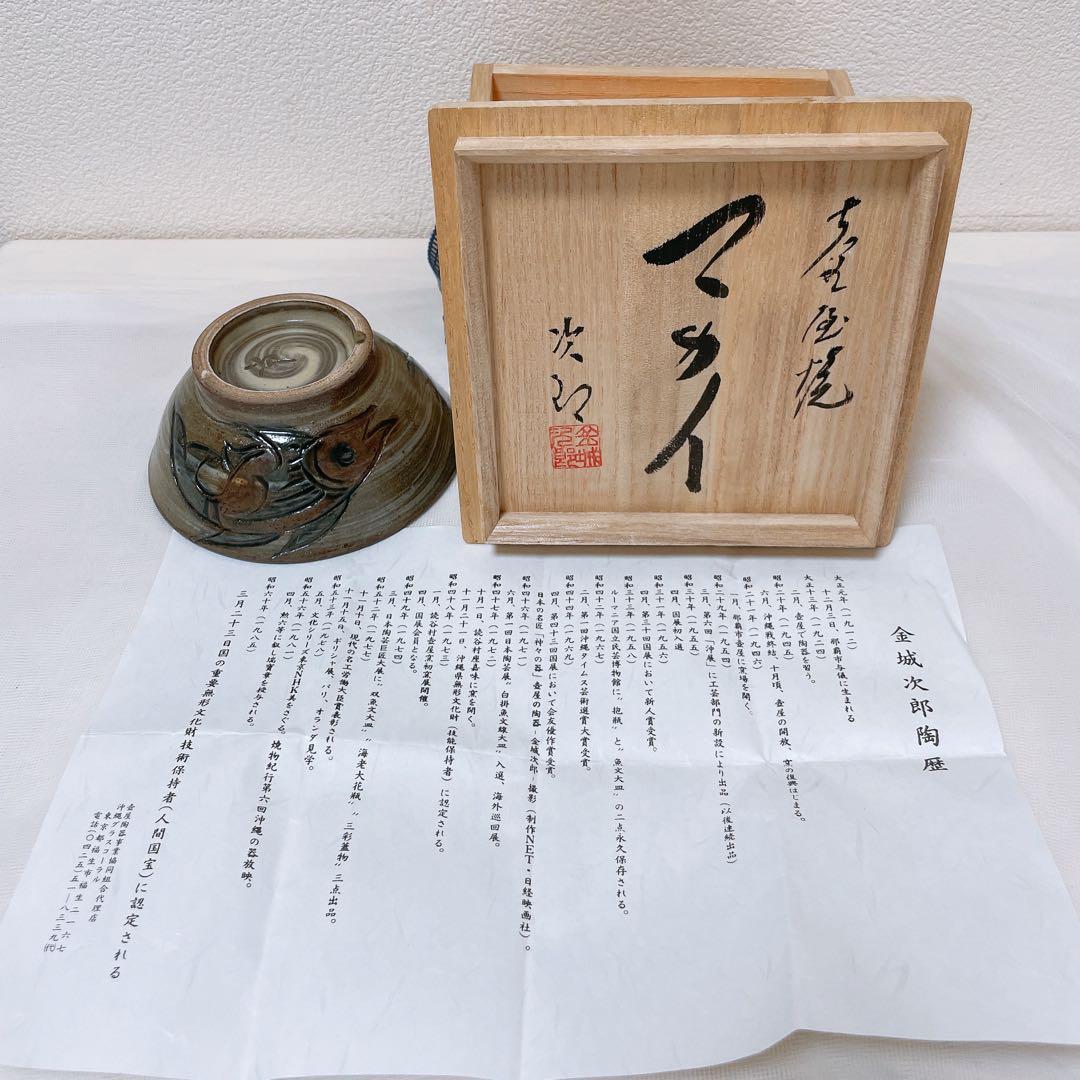 壺屋焼
マカイ
次郎
金城次郎陶歴
大正元年(一九一二)
十二月三日、那覇市与儀に生まれる
大正十三年(一九二四)
二月、壺屋で陶器を習う。
昭和二十一年(一九四六)
六月、沖縄戦終結、十月頃、壺屋の開放、窯の復興はじまる。
一月、那覇市壺屋に窯場を開く。
昭和二十九年(一九五四)
三月、第六回「沖展」に工芸部門の新設により出品(以後連続出品)
昭和三十年(一九五五)
四月、国展初入選
昭和三十一年(一九五六)
四月、第三十回国展において新人賞受賞。
昭和三十三年(一九五八)
ルーマニア国立民芸博物館に"抱瓶"と"魚文大皿"の二点永久保存される。
昭和四十二年(一九六七)
二月、第一回沖縄タイムス芸術選賞大賞受賞。
昭和四十四年(一九六九)
四月、第四十三回国展において会友優作賞受賞。
昭和四十六年(一九七一)
日本の名匠「神々の器」壺屋の陶器–金城次郎–撮影(制作NET・日経映画社)。
六月、第一回日本陶芸展"白掛魚文線大皿"入選、海外巡回展。
昭和四十七年(一九七二)
十月一日、読谷村座喜味に窯を開く。
十一月二十一日、沖縄県無形文化財(技能保持者)に認定される。
昭和四十八年(一九七三)
一月、読谷村壺屋窯初窯展開催。
四月、国展会員となる。
昭和四十九年(一九七四)
三月、日本陶芸巨匠大展に"双魚文大皿""海老大花瓶""三彩蓋物"三点出品。
昭和五十二年(一九七七)
十一月十日、現代の名工労働大臣賞表彰される。
十一月十五日、ギリシャ展、パリ、オランダ見学。
昭和五十三年(一九七八)
五月、文化シリーズ東京NHK美をさぐる。焼物紀行第六回沖縄の器放映。
昭和五十六年(一九八一)
四月、勲六等に叙し瑞宝章を授与される。
昭和六十年(一九八五)
三月二十三日国の重要無形文化財技術保持者(人間国宝)に認定される
壺屋陶器事業協同組合代理店
沖縄グラスコーラル
東京都福生市福生二一六七
電話(〇四二五)五一–八三三九㈹